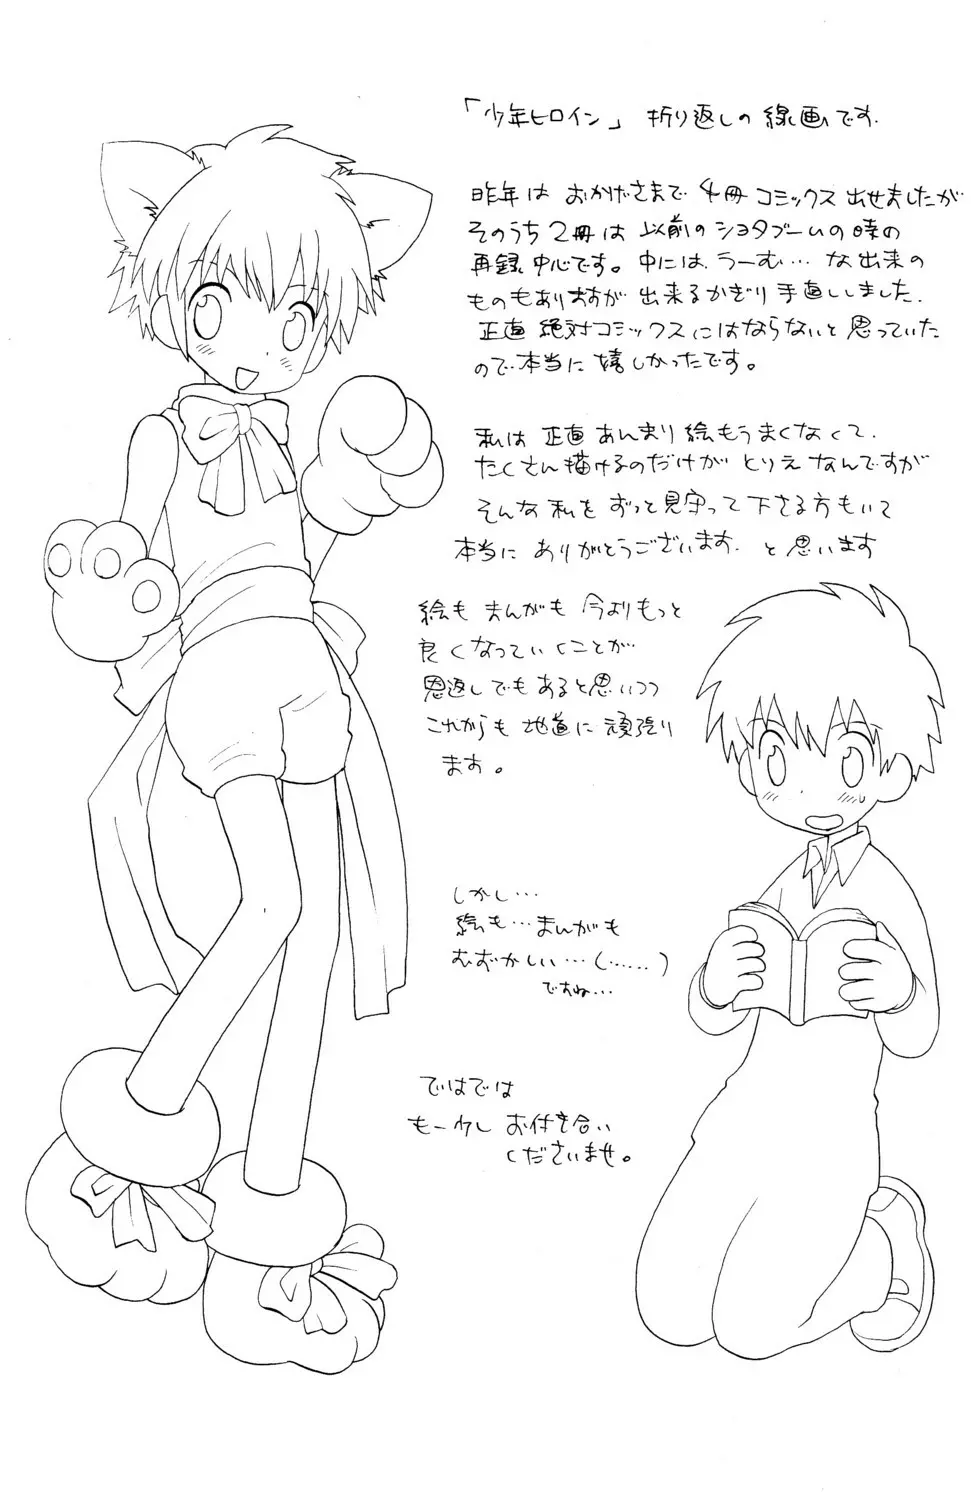 「少年ヒロイン」 折り返しの線画です.
昨年は おかげさまで 4冊 コミックス 出せましたが
そのうち 2冊は 以前の ショタブームの時の
再録中心です。中には、うーむ… な出来の
ものもありますが 出来るかぎり 手直ししました.
正直 絶対コミックスにはならないと思っていた
ので本当に 嬉しかったです。
私は 正直 あんまり絵もうまくなくて.
たくさん描けるのだけが とりえ なんですが
そんな 私を ずっと見守って下さる方もいて
本当に ありがとうございます. と思います
絵も まんがも 今よりもっと
良くなっていくことが
恩返しでもあると思いつつ
これからも 地道に 頑張り
ます。
しかし…
絵も…まんがも
むずかしい…(……)
ですね…
ではでは
もー少し お付き合い
くださいませ。